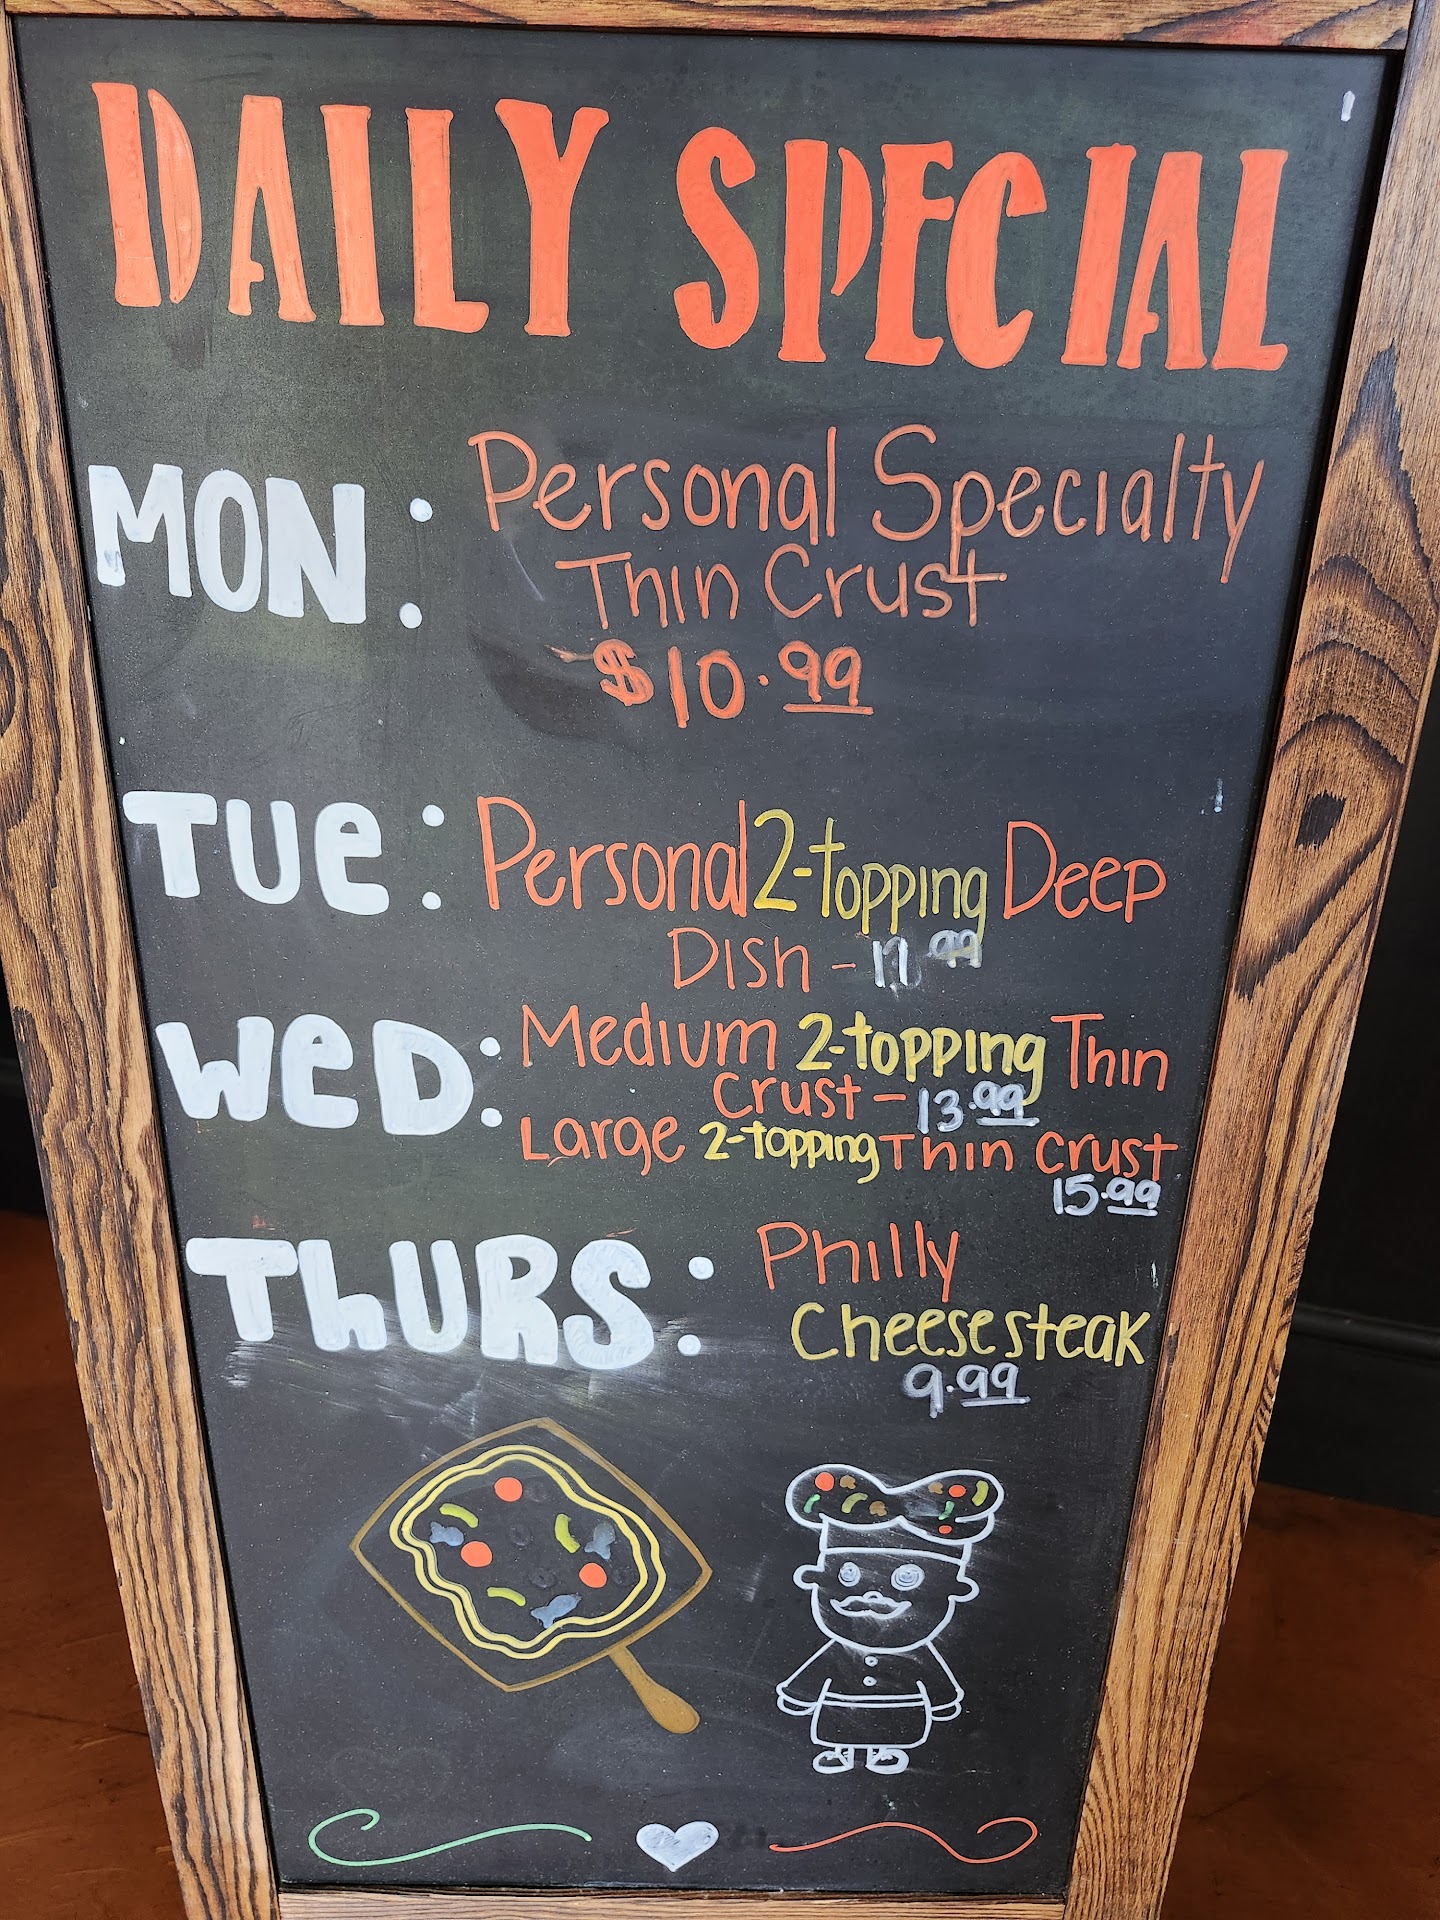 DAILY SPECIAL
MON: Personal Specialty
Thin Crust
$10.99
TUE: Personal 2-topping Deep
Dish -
WED: Medium 2-topping Thin
Crust - 13.99
Large 2-topping Thin Crust
15.99
THURS: Philly
Cheesesteak
9.99